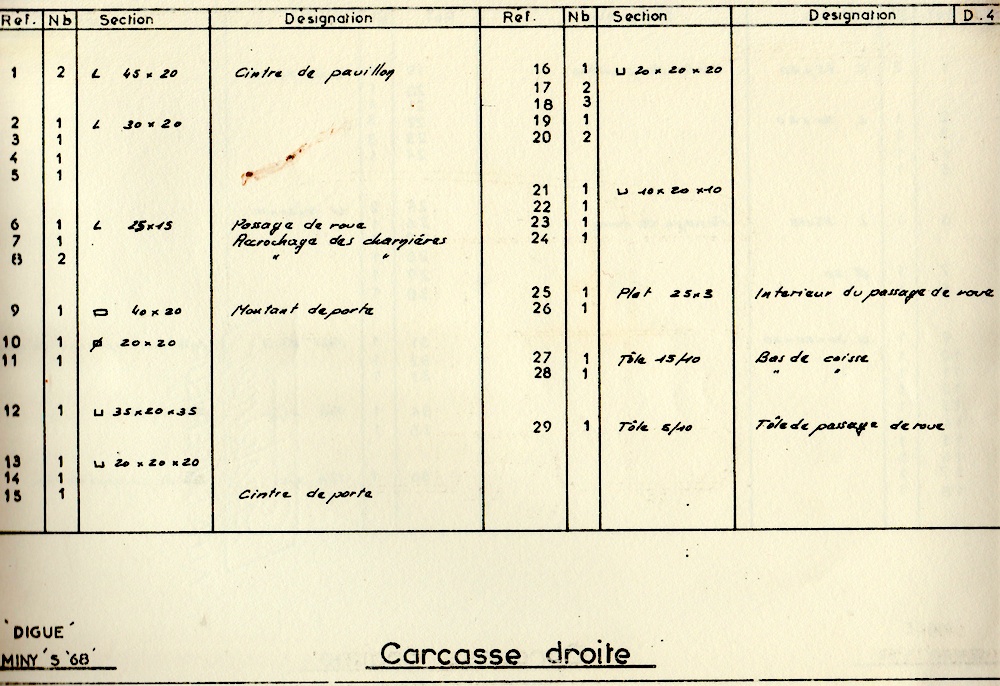 Réf. Nb Section Designation
1 2 L 45 x 20 Cintre de pavillon
2 1 L 30 x 20
3 1
4 1
5 1
6 1 L 25 x 15 Passage de roue
7 1 Acrochage des charnières
8 2 " "
9 1 ▭ 40 x 20 Montant de porte
10 1 20 x 20
11 1
12 1 ⊔ 35 x 20 x 35
13 1 ⊔ 20 x 20 x 20
14 1
15 1 Cintre de porte
Réf. Nb Section Designation D.4
16 1 ⊔ 20 x 20 x 20
17 2
18 3
19 1
20 2
21 1 ⊔ 10 x 20 x 10
22 1
23 1
24 1
25 1 Plat 25 x 3 Interieur du passage de roue
26 1
27 1 Tôle 15/10 Bas de caisse
28 1 " "
29 1 Tôle 5/10 Tôle de passage de roue
'DIGUE'
MINY 'S '68'
Carcasse droite